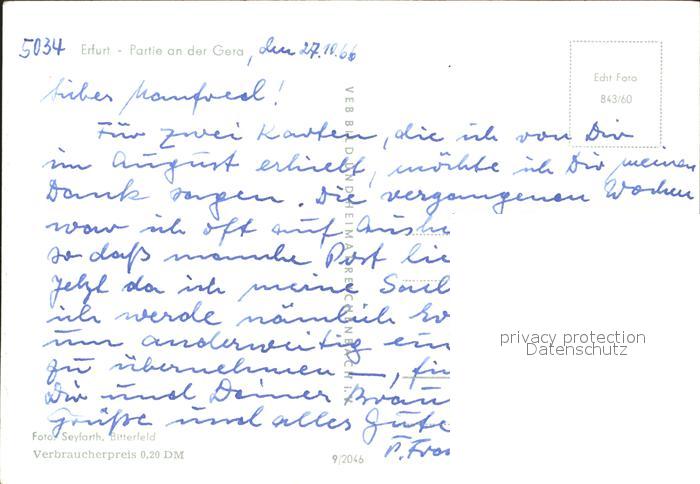 5034 Erfurt - Partie an der Gera, den 27.10.66
Echt Foto
843/60
Lieber Manfred!
Für zwei Karten, die ich von Dir
im August erhielt, möchte ich Dir meinen
Dank sagen. Die vergangenen Wochen
war ich oft auf
so daß manche Post lie
Jetzt da ich meine
ich werde nämlich
um anderweitig ein
zu übernehmen —, für
Dir und Deiner Brau
Grüße und alles Gute
privacy protection
Datenschutz
VEB BILD UND HEIMAT REICHENBACH I. V.
Foto: Seyfarth, Bitterfeld
Verbraucherpreis 0,20 DM
9/2046